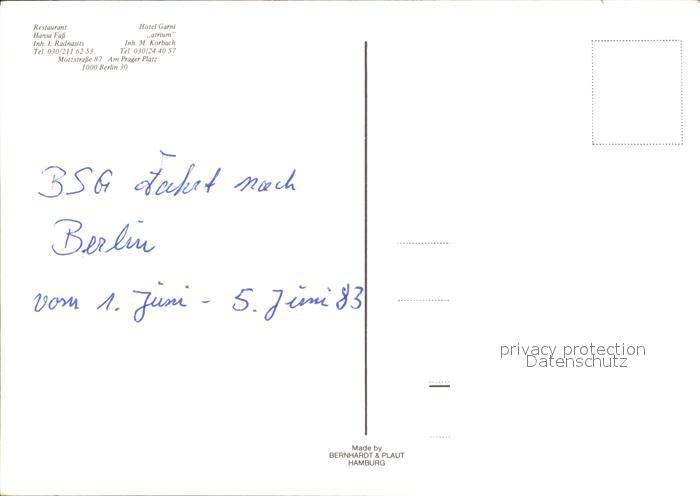 Restaurant Hotel Garni
Hansa Faß „atrium"
Inh. I. Radnasits Inh. M. Korbach
Tel. 030/211 62 53 Tel. 030/24 40 57
Motzstraße 87 Am Prager Platz
1000 Berlin 30
BSG Fahrt nach
Berlin
vom 1. Juni - 5. Juni 83
privacy protection
Datenschutz
Made by
BERNHARDT & PLAUT
HAMBURG